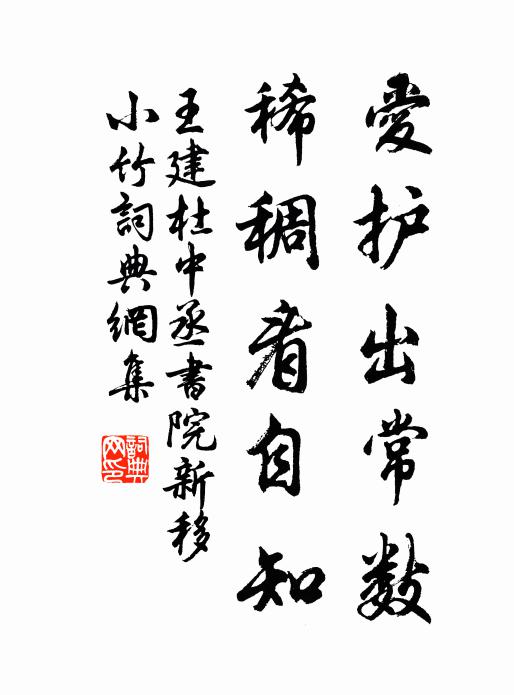 愛护出常数
稀稠看自知
王建杜中丞書院新移
小竹詞典網集
詞典
网印